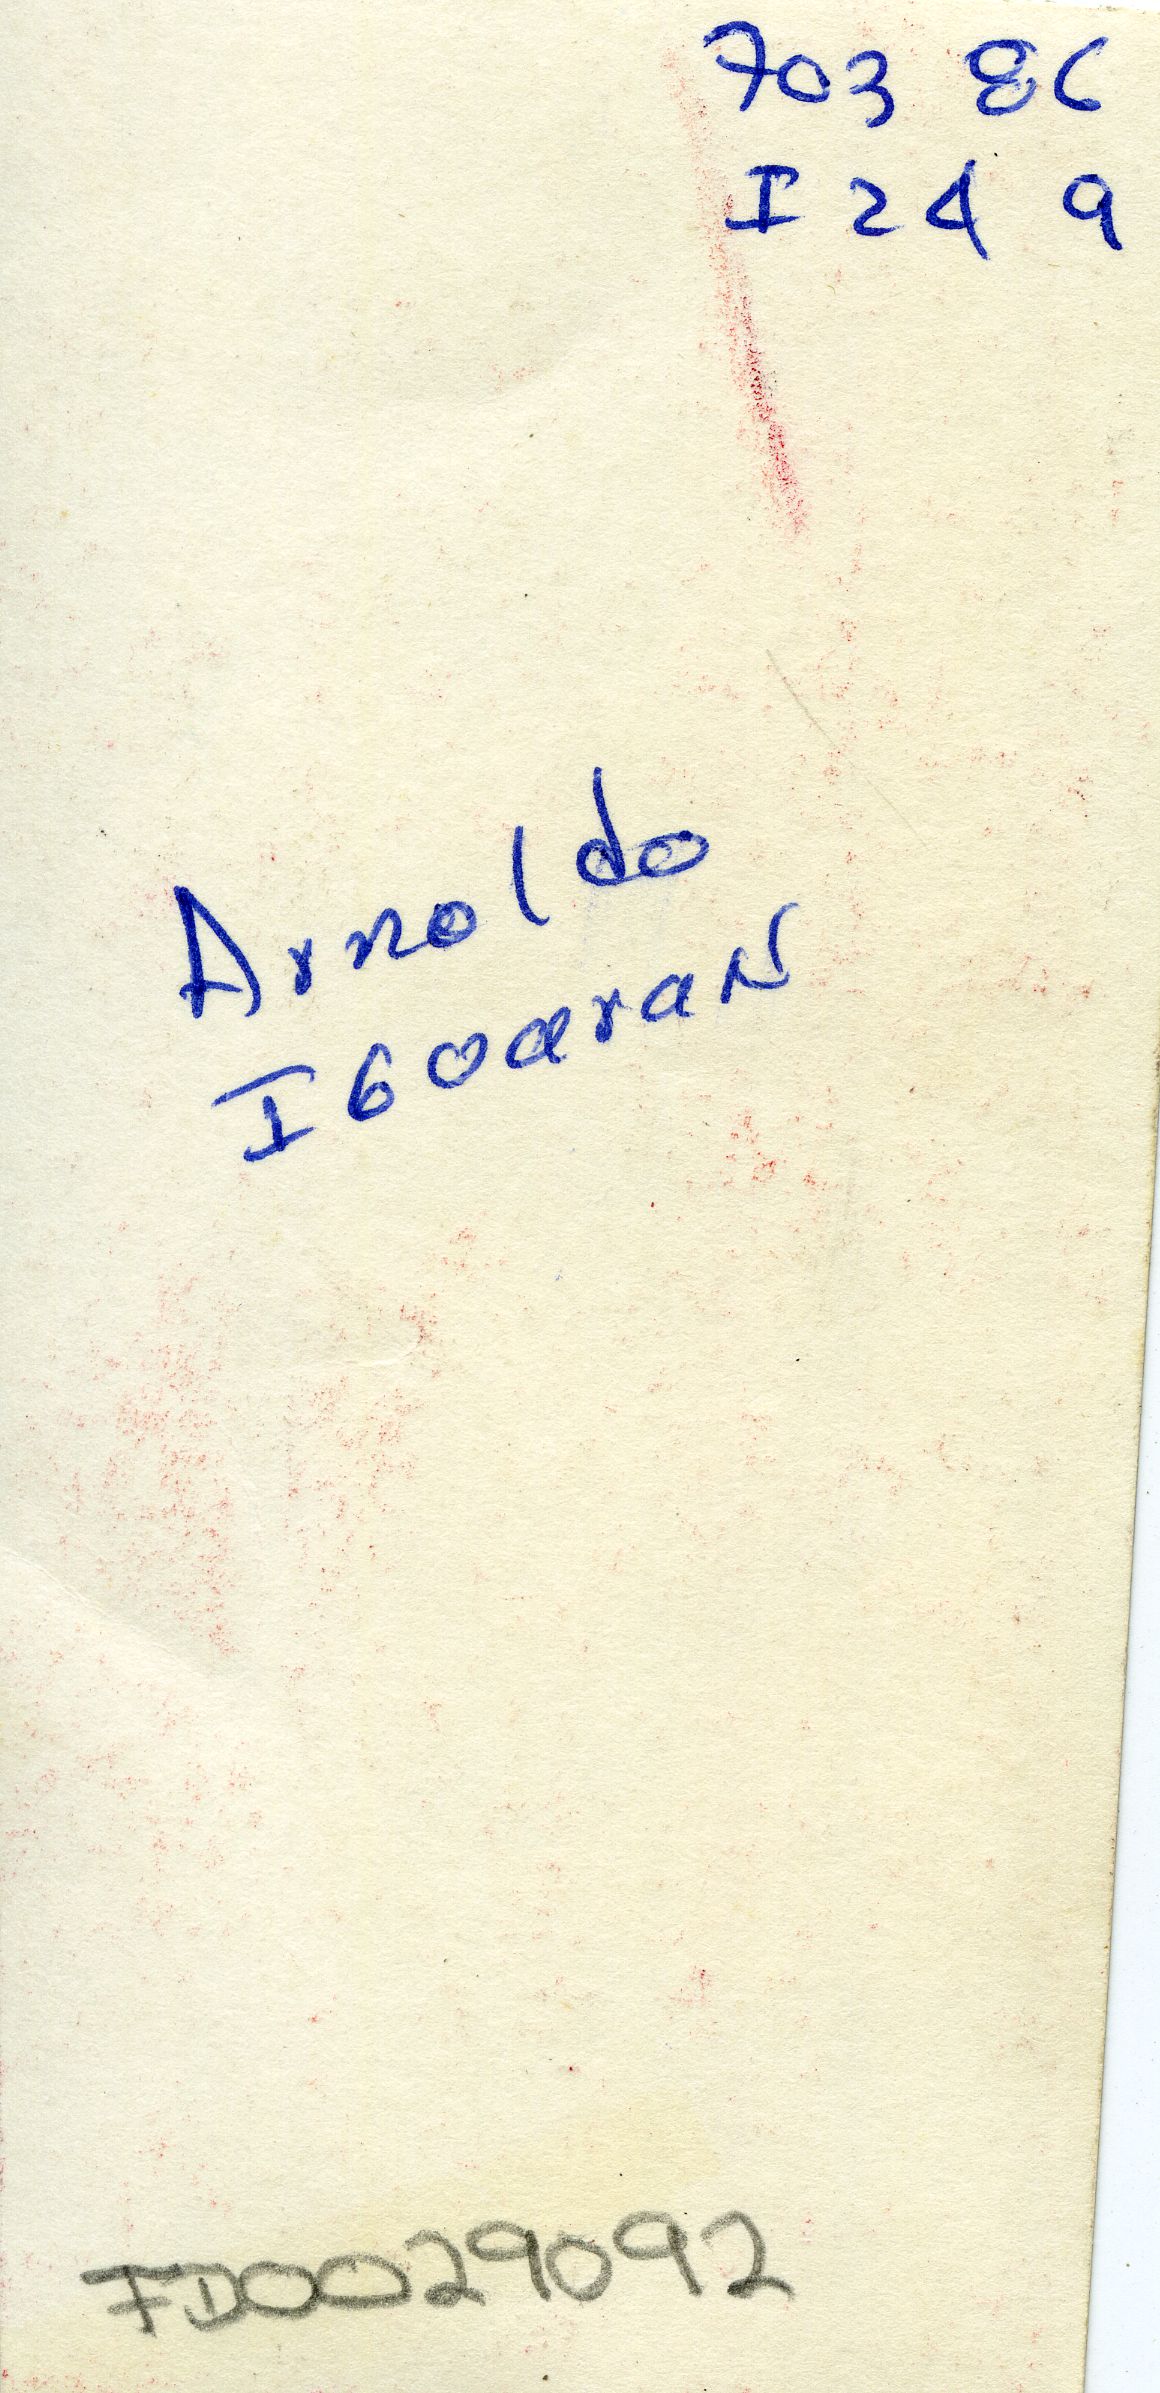 703 86
I 24 9
Arnoldo
IbaaraN
FD0029092